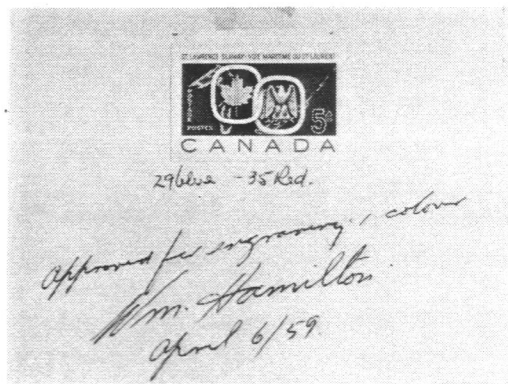 ST. LAWRENCE SEAWAY · VOIE MARITIME DU ST-LAURENT
POSTAGE
POSTES
5¢
CANADA
29 blue - 35 Red.
Approved for engraving, colour
Wm. Hamilton
April 6/59